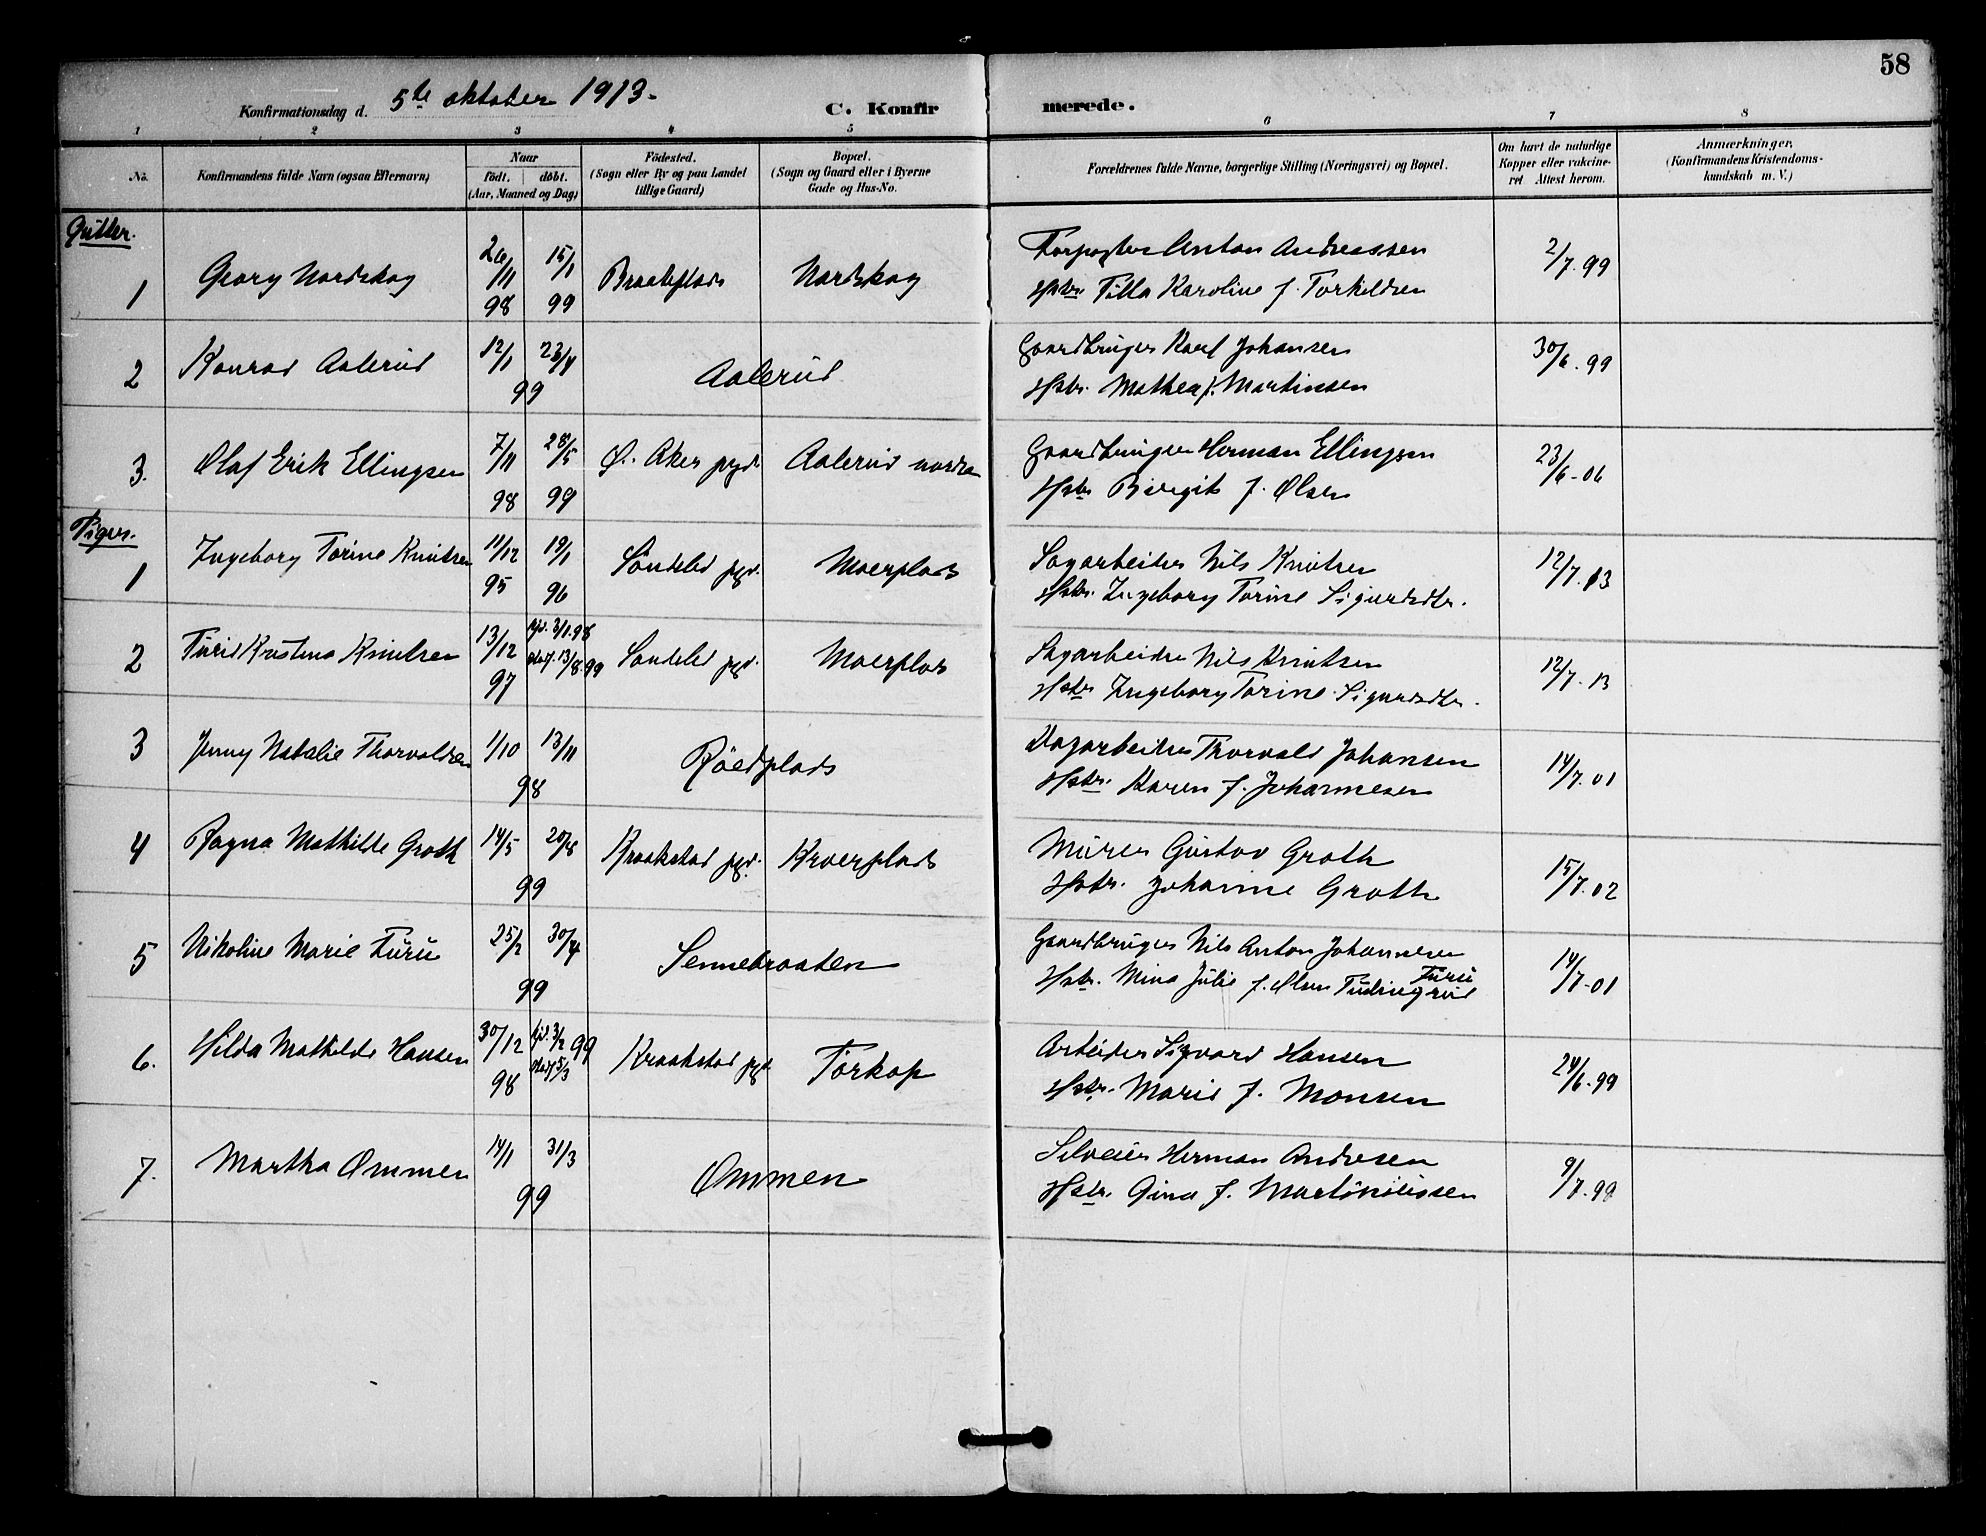 58
Konfirmationsdag d. 5te oktober 1913.
C. Konfirmerede.
1 2 3 4 5 6 7 8
No.
Konfirmandens fulde Navn (ogsaa Efternavn)
Naar
födt. döbt.
(Aar, Maaned og Dag)
Födested.
(Sogn eller By og paa Landet
tillige Gaard)
Bopæl.
(Sogn og Gaard eller i Byerne
Gade og Hus-No.
Forældrenes fulde Navne, borgerlige Stilling (Næringsvei) og Bopæl.
Om havt de naturlige
Kopper eller vakcine-
ret Attest herom.
Anmærkninger.
(Konfirmandens Kristendoms-
kundskab m. V.)
Gutter.
1 Georg Nordskog 26/11 98 15/1 99 Braateplads Nordskog
Forpagter Anton Andreassen
Hstr. Tilla Karoline f. Torkildsen
2/7.99
2 Konrad Aalerud 12/1 23/4 99 Aalerud
Gaardbruger Karl Johansen
Hstr. Mathea f. Martinsen
30/6.99
3. Olaf Erik Ellingsen 7/11 98 28/5 99 Ø. Aker pgd. Aalerud nordre
Gaardbruger Herman Ellingsen
Hstr. Birgit f. Olsen
23/6-06
Piger.
1 Ingeborg Torine Knutsen 11/12 95 19/1 96 Söndeled pgd. Moerplads
Sagarbeider Nils Knutsen
Hstr. Ingeborg Torine Sigurdsdtr.
12/7.13
2 Turid Kristine Knutsen 13/12 97 hjd. 3/1.98 stadf. 13/8 99 Söndeled pgd. Moerplads
Sagarbeider Nils Knutsen
Hstr. Ingeborg Torine Sigurdsdtr.
12/7.13
3 Jenny Natalie Thorvaldsen 1/10 13/11 98 Röedplads
Dagarbeider Thorvald Johansen
Hstr. Karen f. Johannesen
14/7.01
4 Ragna Mathilde Groth 14/5 20/8 99 Kraakstad pgd. Kroerplads
Murer Gustav Groth
Hstr. Johanne Groth
15/7.02
5 Nikoline Marie Furu 25/2 30/4 99 Sennebraaten
Gaardbruger Nils Anton Johannesen
Furu
Hstr. Mina Julie f. Olsen
14/7-01
6. Hilda Mathilde Hansen 30/12 98 hjd. 3/2 99 stadf. 5/3 Kraakstad pgd. Torkop
Arbeider Sigvard Hansen
Hstr. Marie f. Monsen
24/6-99
7. Martha Ommen 14/1 31/3 99 Ommen
Selveier Herman Andresen
Hstr. Gina f. Martiniussen
9/7.99